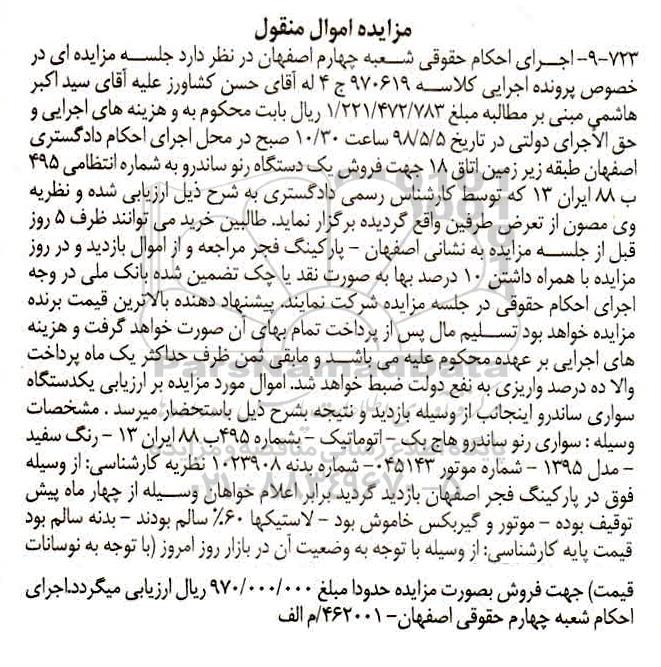 مزایده اموال منقول
۷۲۳-۹- اجرای احکام حقوقی شعبه چهارم اصفهان در نظر دارد جلسه مزایده ای در
خصوص پرونده اجرایی کلاسه ۹۷۰۶۱۹ ج ۴ له آقای حسن کشاورز علیه آقای سید اکبر
هاشمی مبنی بر مطالبه مبلغ ۱/۲۲۱/۴۷۲/۷۸۳ ریال بابت محکوم به و هزینه های اجرایی و
حق الأجرای دولتی در تاریخ ۹۸/۵/۵ ساعت ۱۰/۳۰ صبح در محل اجرای احکام دادگستری
اصفهان طبقه زیر زمین اتاق ۱۸ جهت فروش یک دستگاه رنو ساندرو به شماره انتظامی ۴۹۵
ب ۸۸ ایران ۱۳ که توسط کارشناس رسمی دادگستری به شرح ذیل ارزیابی شده و نظریه
وی مصون از تعرض طرفین واقع گردیده برگزار نماید. طالبین خرید می توانند ظرف ۵ روز
قبل از جلسه مزایده به نشانی اصفهان - پارکینگ فجر مراجعه و از اموال بازدید و در روز
مزایده با همراه داشتن ۱۰ درصد بها به صورت نقد یا چک تضمین شده بانک ملی در وجه
اجرای احکام حقوقی در جلسه مزایده شرکت نمایند. پیشنهاد دهنده بالاترین قیمت برنده
مزایده خواهد بود تسلیم مال پس از پرداخت تمام بهای آن صورت خواهد گرفت و هزینه
های اجرایی بر عهده محکوم علیه می باشد و مابقی ثمن ظرف حداکثر یک ماه پرداخت
والا ده درصد واریزی به نفع دولت ضبط خواهد شد. اموال مورد مزایده بر ارزیابی یکدستگاه
سواری ساندرو اینجانب از وسیله بازدید و نتیجه بشرح ذیل باستحضار میرسد . مشخصات
وسیله : سواری رنو ساندرو هاچ بک - اتوماتیک - بشماره ۴۹۵ب ۸۸ ایران ۱۳ - رنگ سفید
- مدل ۱۳۹۵ - شماره موتور ۰۴۵۱۴۳- شماره بدنه ۱۰۲۳۹۰۸ نظریه کارشناسی: از وسیله
فوق در پارکینگ فجر اصفهان بازدید گردید برابر اعلام خواهان وسیله از چهار ماه پیش
توقیف بوده - موتور و گیربکس خاموش بود - لاستیکها ۶۰٪ سالم بودند - بدنه سالم بود
قیمت پایه کارشناسی: از وسیله با توجه به وضعیت آن در بازار روز امروز (با توجه به نوسانات
قیمت) جهت فروش بصورت مزایده حدودا مبلغ ۹۷۰/۰۰۰/۰۰۰ ریال ارزیابی میگردد.اجرای
احکام شعبه چهارم حقوقی اصفهان- ۴۶۲۰۰۱/م الف
ParsNamadData
۰۲۱-۸۸۳۴۹۶۷۰-۵